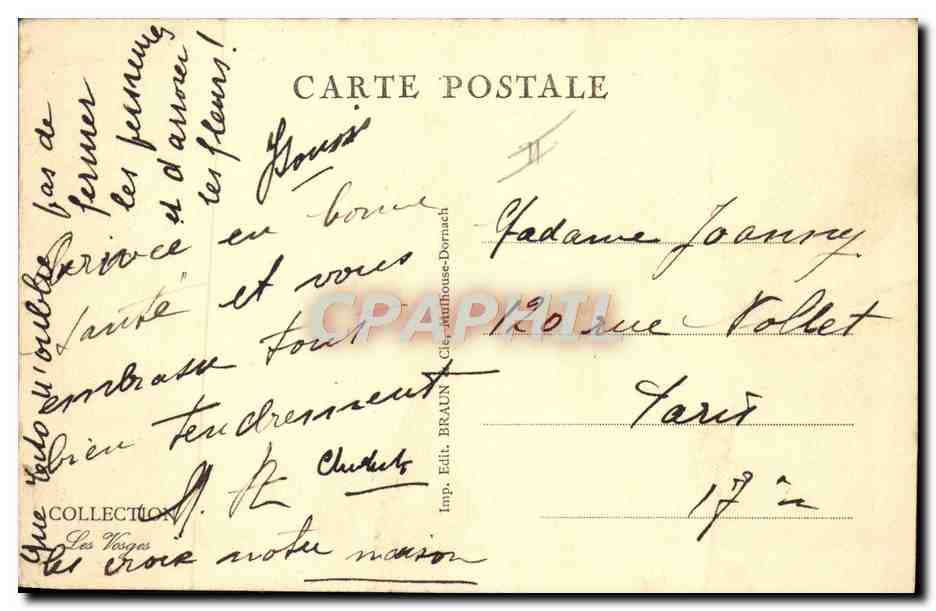 CARTE POSTALE
II
arrivée en bonne
santé et vous
embrasse tout
bien tendrement
les croix notre maison
Que Toto n'oublie
pas de
fermer
les persiennes
et d'arroser
les fleurs!
Madame Joanny
120 rue Nollet
Paris
17
Imp. Edit. BRAUN & Cie, Mulhouse-Dornach
COLLECTION
Les Vosges
CPAPHIL